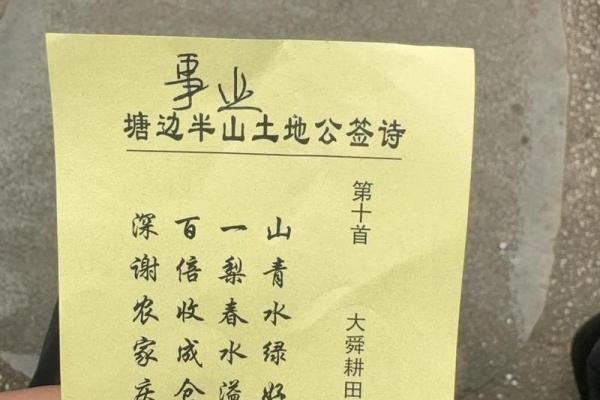 事业
塘边半山土地公签诗
第十首 大舜耕田
山青水绿好
一梨春水溢
百倍收成仓
深谢农家庆